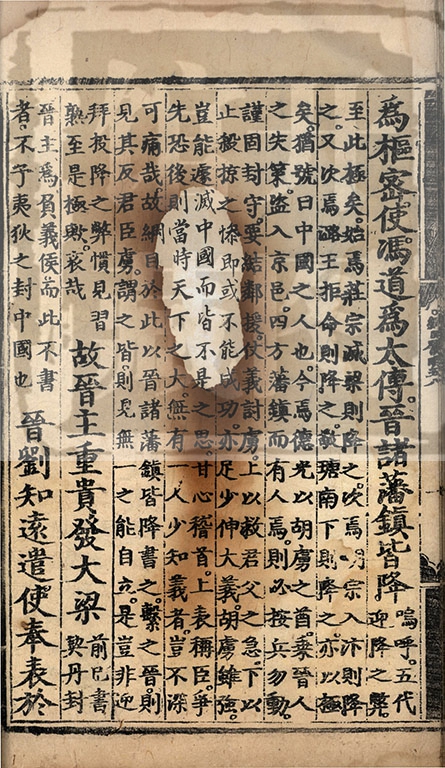 為樞密使馮道為太傅晉諸藩鎮皆降
嗚呼。五代
迎降之弊。
至此極矣。始焉莊宗滅梁則降之。次焉明宗入汴則降
之又次焉潞王拒命則降之。敬瑭南下則降之。亦以極
矣。猶號曰中國之人也。今焉德光以胡虜之酋。乗晉人
之失策。盜入京邑。四方藩鎮而有人焉。則必按兵勿動。
謹固封守。要結鄰援。仗義討虜。上以救君父之急。下以
止殺掠之慘。即或不能成功。亦足少伸大義。胡虜雖强。
豈能遽滅中國。而皆不是之思。甘心稽首。上表稱臣。爭
先恐後。則當時天下之大。無有一人少知義者。豈不深
可痛哉。故綱目於此以晉諸藩鎮皆降書之。繫之晉。則
見其反君臣虜。謂之皆。則見無一之能自立。是豈非迎
拜投降之弊。慣見習
熟。至是極歟。哀哉
故晉主重貴發大梁
前已書
契丹封
晉主為負義侯。而此不書
者。不予夷狄之封中國也
晉劉知遠遣使奉表於